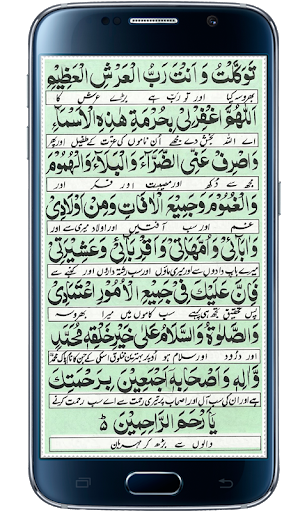 تَوَكَّلْتُ وَ اَنْتَ رَبُّ الْعَرْشِ الْعَظِيْمِ
بھروسہ کیا اور تو رب ہے بڑے عرش کا
اَللّٰهُمَّ اغْفِرْلِيْ بِحُرْمَةِ هٰذِهِ الْاَسْمَآءِ
اے اللہ بخش دے مجھے ان ناموں کی عزت کے طفیل اور پھیر
وَاصْرِفْ عَنِّي الضَّرَّآءَ وَ الْبَلَآءَ وَ الْهُمُوْمَ
مجھ سے دُکھ اور مصیبت اور فکر اور
وَ الْغُمُوْمَ وَجَمِيْعَ الْاٰفَاتِ وَمِنْ اَوْلَادِيْ
غم اور سب آفتیں اور اولاد میری سے اور
وَ اٰبَآئِيْ وَ اُمَّهَاتِيْ وَ اَقْرِبَآئِيْ وَعَشِيْرَتِيْ
میرے باپ دادوں سے اور میری ماؤں اور سب رشتہ داروں اور کنبے سے
فَاِنَّ عَلَيْكَ فِيْ جَمِيْعِ الْاُمُوْرِ اعْتِمَادِيْ
پس تحقیق تجھ ہی پہ سب کاموں میں میرا بھروسہ
وَالصَّلٰوةُ وَالسَّلَامُ عَلٰى خَيْرِ خَلْقِهٖ مُحَمَّدٍ
اور درود اور سلام ہو اوپر بہترین مخلوق اسکی کے جن کا نام پاک محمد
وَّاٰلِهٖ وَ اَصْحَابِهٖ اَجْمَعِيْنَ بِرَحْمَتِكَ
ہے اور ان کی سب آل اور اصحاب پر تیری رحمت سے اے سب رحمت کرنے
يَآ اَرْحَمَ الرَّاحِمِيْنَ ۵
والوں سے بڑھ کر مہربان